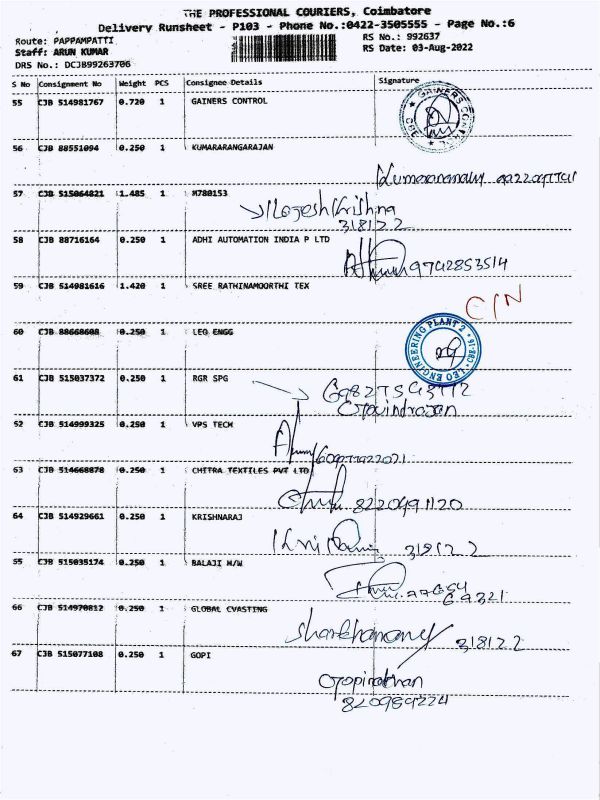 THE PROFESSIONAL COURIERS, Coimbatore
Delivery Runsheet - P103 - Phone No.:0422-3505555 - Page No.:6
Route: PAPPAMPATTI RS No.: 992637
Staff: ARUN KUMAR RS Date: 03-Aug-2022
DRS No.: DCJB99263706
S No Consignment No Weight PCS Consignee Details Signature
55 CJB 514981767 0.720 1 GAINERS CONTROL
GAINERS CONTROL CBE
56 CJB 88551094 0.250 1 KUMARARANGARAJAN
57 CJB 515064821 1.485 1 M780153
Logesh Krishna
318122
58 CJB 88716164 0.250 1 ADHI AUTOMATION INDIA P LTD
9742853514
59 CJB 514981616 1.420 1 SREE RATHINAMOORTHI TEX
C/N
60 CJB 88668608 0.250 1 LEO ENGG
LEO ENGINEERING PLANT 2 CBE-16
61 CJB 515037372 0.250 1 RGR SPG
Govindrajan
52 CJB 514999325 0.250 1 VPS TECH
63 CJB 514668878 0.250 1 CHITRA TEXTILES PVT LTD
8220491120
64 CJB 514929661 0.250 1 KRISHNARAJ
318122
55 CJB 515035174 0.250 1 BALAJI M/W
66 CJB 514970812 0.250 1 GLOBAL CVASTING
318122
67 CJB 515077108 0.250 1 GOPI
Gopinathan